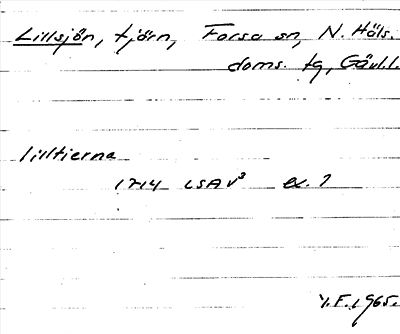 Lillsjön, tjärn, Forsa sn, N. Häls.
doms. tg, Gävl.l.
lilltierna
1714 LSA V³ ex. 1
Y.F. 1965.